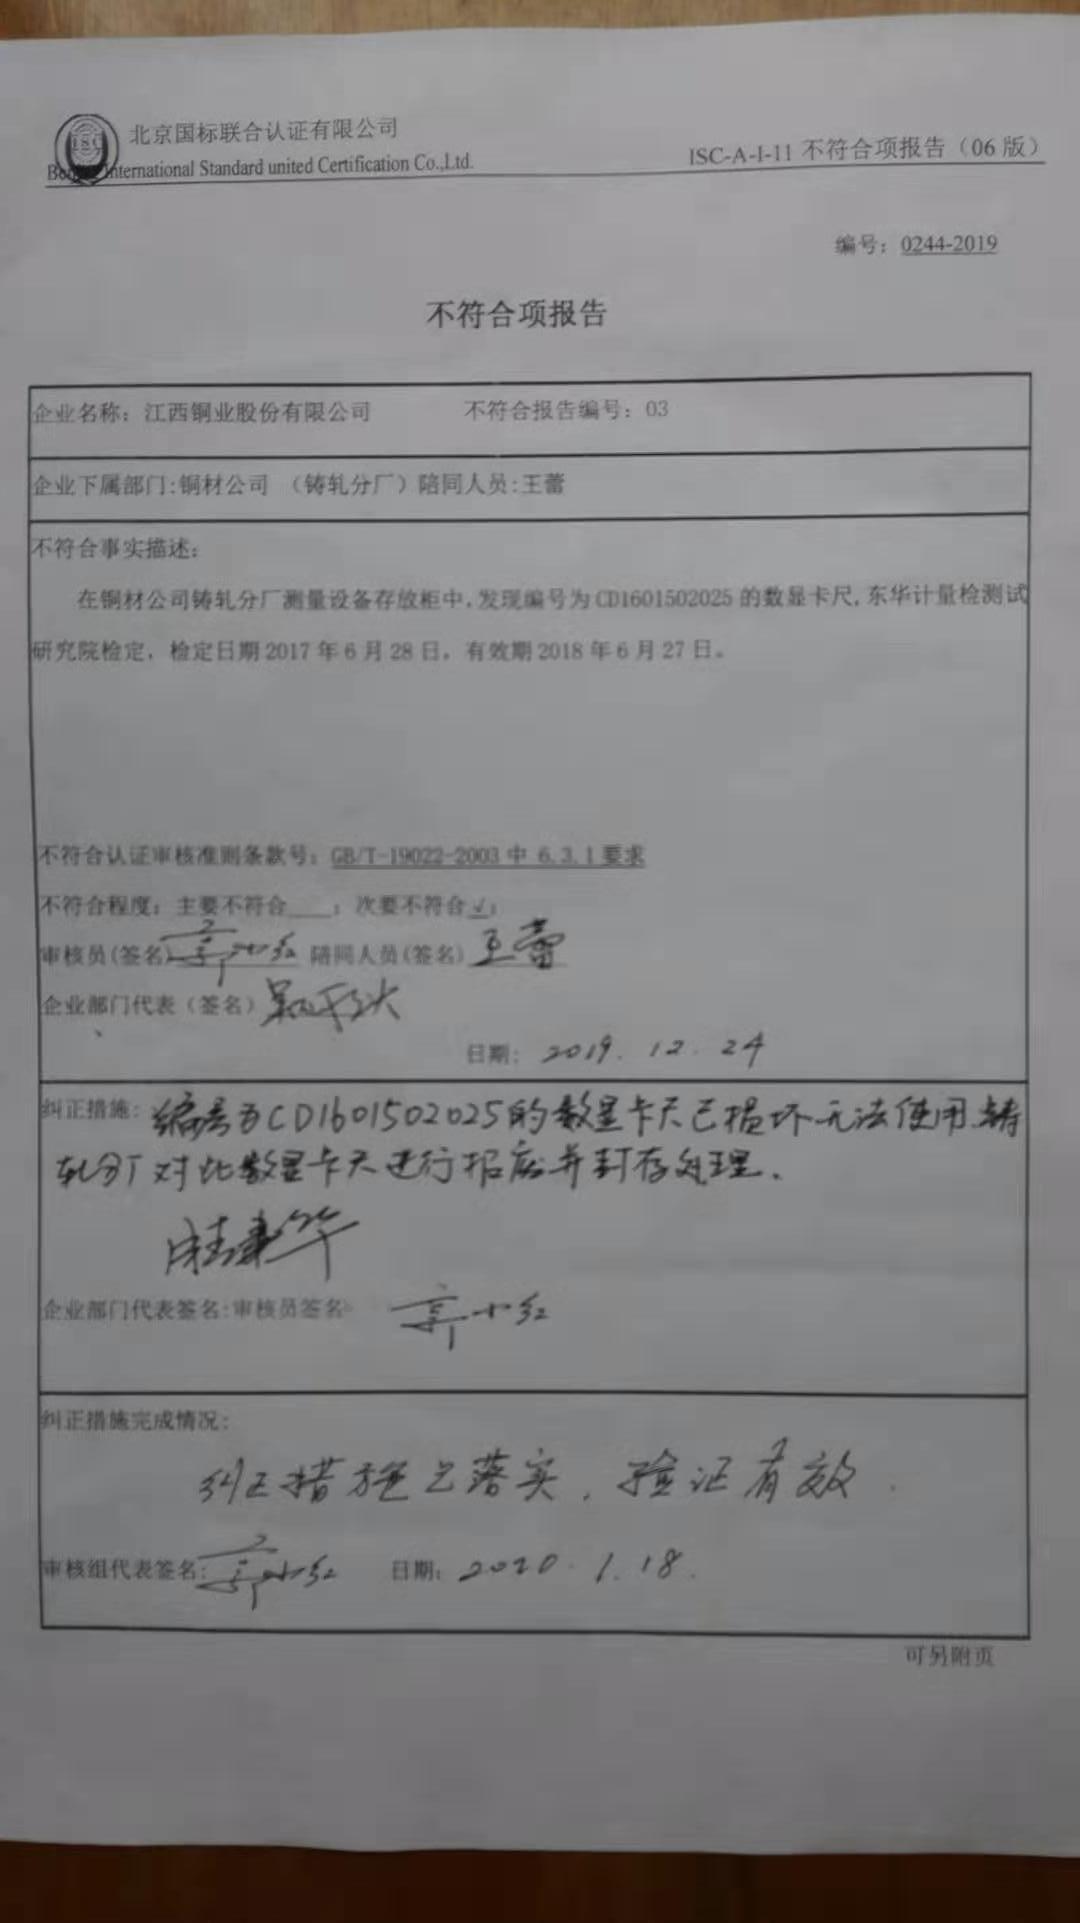 北京国标联合认证有限公司
International Standard united Certification Co.,Ltd.
ISC-A-I-11 不符合项报告（06 版）
编号：0244-2019
不符合项报告
企业名称：江西铜业股份有限公司 不符合报告编号：03
企业下属部门:铜材公司 （铸轧分厂）陪同人员:王蕾
不符合事实描述：
在铜材公司铸轧分厂测量设备存放柜中,发现编号为 CD1601502025 的数显卡尺,东华计量检测试
研究院检定，检定日期 2017 年 6 月 28 日，有效期 2018 年 6 月 27 日。
不符合认证审核准则条款号：GB/T-19022-2003 中 6.3.1 要求
不符合程度：主要不符合____；次要不符合√；
审核员(签名) 郭小红 陪同人员(签名) 王蕾
企业部门代表（签名）
日期： 2019. 12. 24
纠正措施: 编号为CD1601502025的数显卡尺已损坏无法使用.铸
轧分厂对此数显卡尺进行报废并封存处理.
企业部门代表签名:审核员签名: 郭小红
纠正措施完成情况:
纠正措施已落实，验证有效.
审核组代表签名: 郭小红 日期: 2020. 1. 18.
可另附页